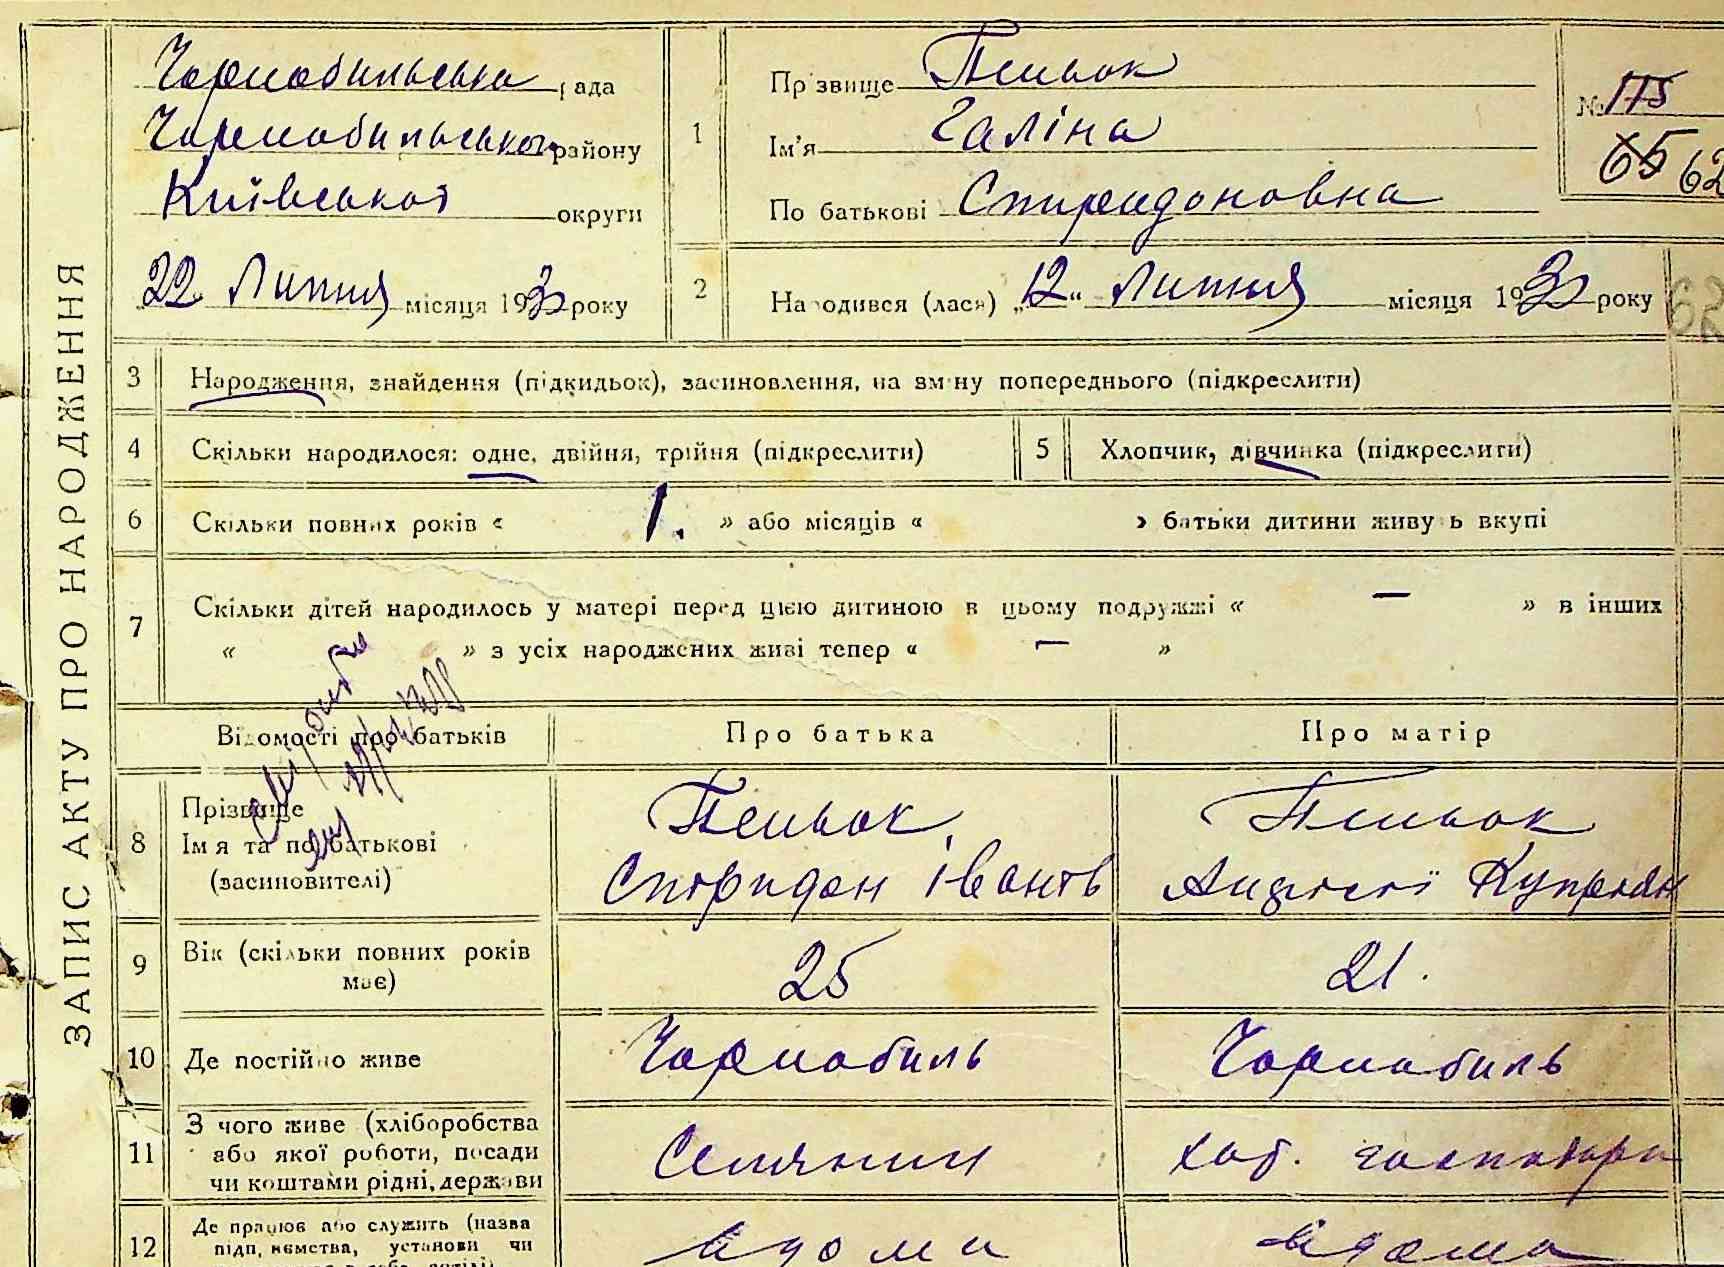 ЗАПИС АКТУ ПРО НАРОДЖЕННЯ
Чорнобильська рада
Чорнобильського району
Київської округи
22 Липня місяця 1930 року
1
Прізвище Пеньок
Ім'я Галіна
По батькові Спиридоновна
№ 175
65 62
2
Народився (лася) „12" Липня місяця 1930 року
62
3 Народження, знайдення (підкидьок), засиновлення, на зміну попереднього (підкреслити)
4 Скільки народилося: одне, двійня, трійня (підкреслити)
5 Хлопчик, дівчинка (підкреслити)
6 Скільки повних років « 1. » або місяців « » батьки дитини живуть вкупі
7 Скільки дітей народилось у матері перед цією дитиною в цьому подружжі « — » в інших
« » з усіх народжених живі тепер « — »
Відомості про батьків Про батька Про матір
8 Прізвище
Ім я та по батькові
(засиновителі)
Пеньок
Спиридон Іванів
Пеньок
Куприян
9 Вік (скільки повних років має) 25 21.
10 Де постійно живе Чорнобиль Чорнобиль
11 З чого живе (хліборобства
або якої роботи, посади
чи коштами рідні, держави
Селянин
хат. господарка
12 Де працює або служить (назва
підприємства, установи чи
вдома вдома